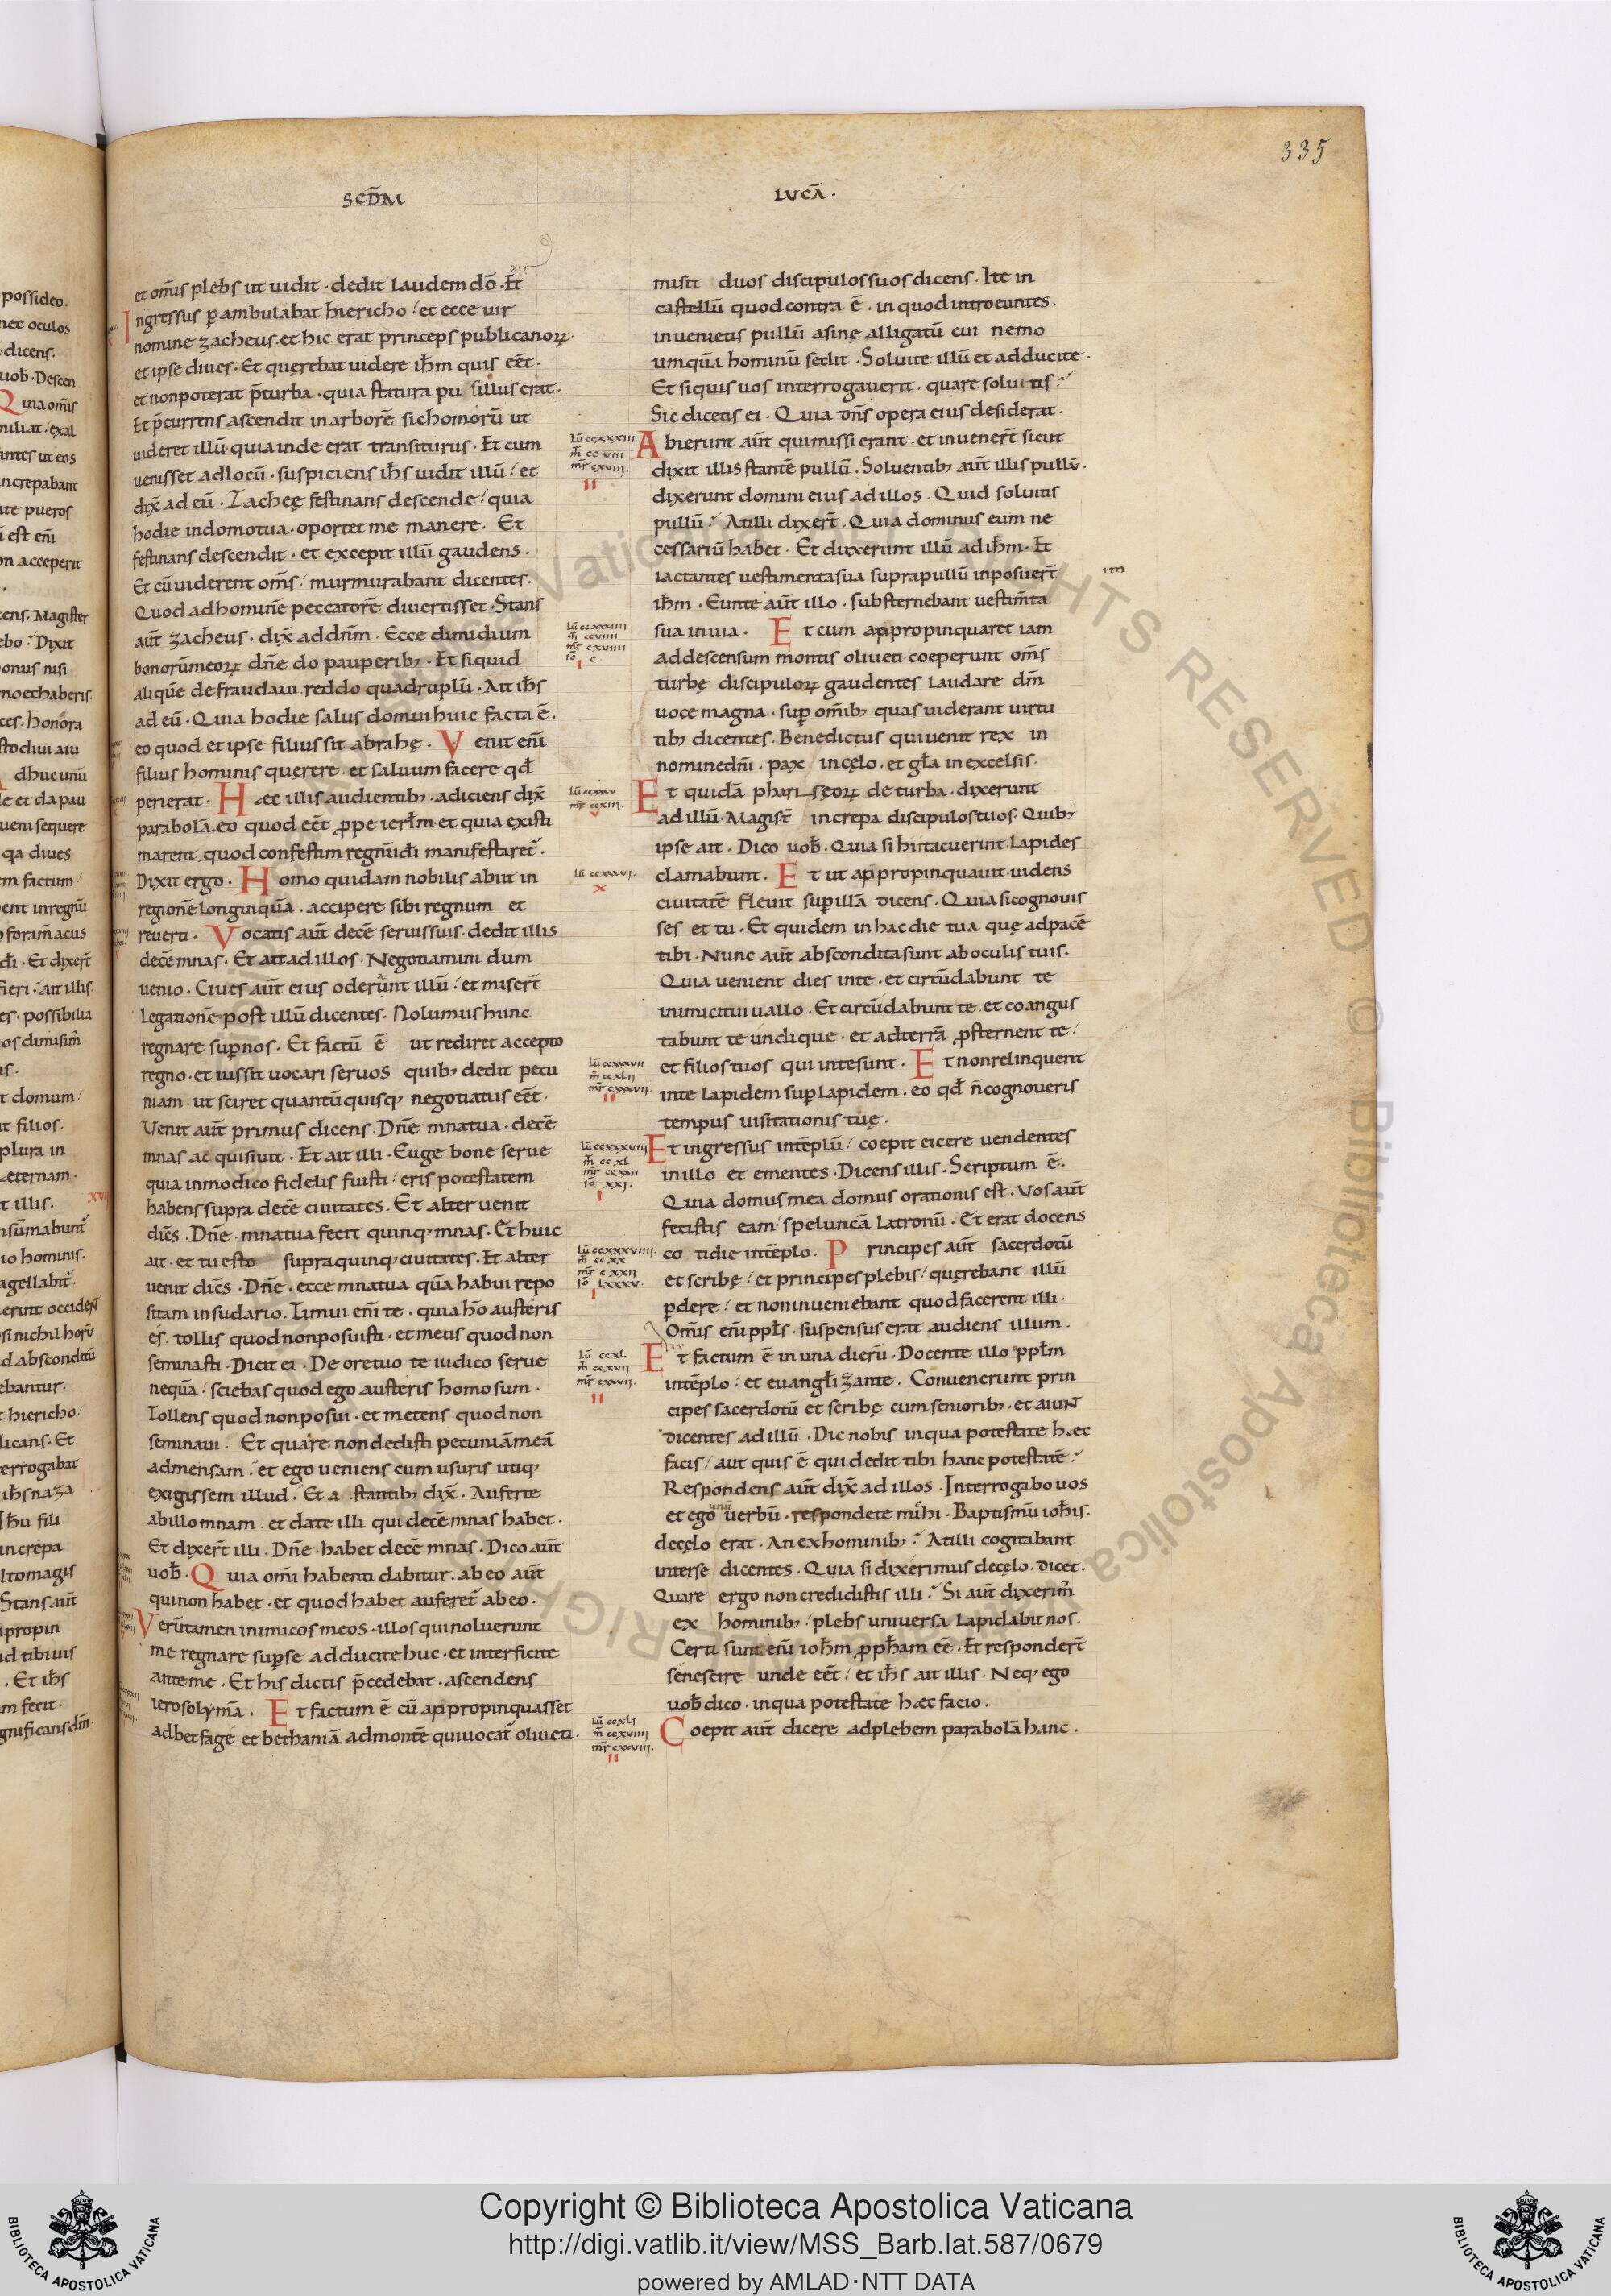 335
SCD̄M
LUCĀ.
et om̄is plebs ut uidit · dedit laudem dō · Et
Ingressus p̱ambulabat hiericho · et ecce uir
nomine zacheus · et hic erat princeps publicanoꝝ ·
et ipse diues · Et querebat uidere ih̄m quis eēt ·
et non poterat p̄ turba · quia statura pu sillus erat ·
Et p̄currens ascendit in arborē sichomorū ut
uideret illū · quia inde erat transiturus · Et cum
uenisset ad locū · suspiciens ih̄s uidit illū · et
dix̄ ad eū · Zacheę festinans descende · quia
hodie in domo tua · oportet me manere · Et
festinans descendit · et excepit illū gaudens ·
Et cū uiderent om̄s · murmurabant dicentes ·
Quod ad hominē peccatorē diuertisset · Stans
aūt zacheus · dix̄ ad dn̄m · Ecce dimidium
bonorū meoꝝ dn̄e do pauperib; · Et si quid
aliquē defraudaui · reddo quadruplū · Ait ih̄s
ad eū · Quia hodie salus domui huic facta ē ·
eo quod et ipse filius sit abrahę · Venit eni̅
filius hominis querere · et saluum facere qd̄
perierat · Hæc illis audientib; · adiciens dix̄
parabolā · eo quod eēt ꝓpe ierl̄m · et quia existi
marent · quod confestim regnū dī manifestaret̄ ·
Dixit ergo · Homo quidam nobilis abiit in
regionē longinquā · accipere sibi regnum et
reuerti · Vocatis aūt decē seruis suis · dedit illis
decē mnas · Et ait ad illos · Negotiamini dum
uenio · Ciues aūt eius oderunt illū · et miser̄t
legationē post illū dicentes · Nolumus hunc
regnare sup̱ nos · Et factū ē ut rediret accepto
regno · et iussit uocari seruos quib; dedit pecu
niam · ut sciret quantū quisq; negotiatus eēt ·
Venit aūt primus dicens · Dn̄e mna tua · decē
mnas ac quisiuit · Et ait illi · Euge bone serue
quia in modico fidelis fuisti · eris potestatem
habens supra decē ciuitates · Et alter uenit
dic̄s · Dn̄e · mna tua fecit quinq; mnas · Et huic
ait · et tu esto supra quinq; ciuitates · Et alter
uenit dic̄s · Dn̄e · ecce mna tua quā habui repo
sitam in sudario · Timui eni̅ te · quia hō austeris
es · tollis quod non posuisti · et metis quod non
seminasti · Dicit ei · De ore tuo te iudico serue
nequā · sciebas quod ego austeris homo sum ·
Tollens quod non posui · et metens quod non
seminaui · Et quare non dedisti pecuniā meā
ad mensam · et ego ueniens cum usuris utiq;
exigissem illud · Et a stantib; dix̄ · Auferte
ab illo mnam · et date illi qui decē mnas habet ·
Et dixer̄t illi · Dn̄e · habet decē mnas · Dico aūt
uob̄ · Quia om̄i habenti dabitur · ab eo aūt
qui non habet · et quod habet auferet̄ ab eo ·
Verūtamen inimicos meos · illos qui noluerunt
me regnare sup̱ se adducite huc · et interficite
ante me · Et his dictis p̄cedebat · ascendens
ierosolymā · Et factum ē cū appropinquasset
ad betfage et bethaniā ad montē qui uocat̄ oliueti ·
misit duos discipulos suos dicens · Ite in
castellū quod contra ē · in quod introeuntes ·
inuenietis pullū asinę alligatū cui nemo
umquā hominū sedit · Soluite illū et adducite ·
Et si quis uos interrogauerit · quare soluitis ·
Sic dicetis ei · Quia dn̄s opera eius desiderat ·
Abierunt aūt qui missi erant · et inuener̄t sicut
dixit illis stantē pullū · Soluentib; aūt illis pullū ·
dixerunt domini eius ad illos · Quid soluitis
pullū · At illi dixer̄t · Quia dominus eum ne
cessariū habet · Et duxerunt illū ad ih̄m · Et
iactantes uestimenta sua supra pullū inposuer̄t
ih̄m · Eunte aūt illo · substernebant uestim̄ta
sua in uia · Et cum appropinquaret iam
ad descensum montis oliueti · coeperunt om̄s
turbę discipuloꝝ gaudentes laudare dm̄
uoce magna · sup̱ om̄ib; quas uiderant uirtu
tib; dicentes · Benedictus qui uenit rex in
nomine dn̄i · pax in cęlo · et gl̄a in excelsis ·
Et quidā phariseoꝝ de turba · dixerunt
ad illū · Magist̄ increpa discipulos tuos · Quib;
ipse ait · Dico uob̄ · Quia si hi tacuerint · lapides
clamabunt · Et ut appropinquauit · uidens
ciuitatē fleuit sup̱ illā dicens · Quia si cognouis
ses et tu · Et quidem in hac die tua quę ad pacē
tibi · Nunc aūt abscondita sunt ab oculis tuis ·
Quia uenient dies in te · et circūdabunt te
inimici tui uallo · Et circūdabunt te · et coangus
tabunt te undique · et ad terrā ꝓsternent te ·
et filios tuos qui in te sunt · Et non relinquent
in te lapidem sup̱ lapidem · eo qd̄ n̄ cognoueris
tempus uisitationis tuę ·
Et ingressus in tēplū · coepit eicere uendentes
in illo et ementes · Dicens illis · Scriptum ē ·
Quia domus mea domus orationis est · Vos aūt
fecistis eam speluncā latronū · Et erat docens
co tidie in tēplo · Principes aūt sacerdotū
et scribę · et principes plebis · querebant illū
p̱dere · et non inueniebant quod facerent illi ·
Om̄is eni̅ ppl̄s · suspensus erat audiens illum ·
Et factum ē in una dierū · Docente illo ppl̄m
in tēplo · et euangl̄izante · Conuenerunt prin
cipes sacerdotū et scribę cum seniorib; · et aiunt
dicentes ad illū · Dic nobis in qua potestate hæc
facis · aut quis ē qui dedit tibi hanc potestatē ·
Respondens aūt dix̄ ad illos · Interrogabo uos
et ego unū uerbū · respondete mihi · Baptismū ioh̄is ·
de cęlo erat · An ex hominib; · At illi cogitabant
inter se dicentes · Quia si dixerimus de cęlo · dicet ·
Quare ergo non credidistis illi · Si aūt dixerim̄
ex hominib; · plebs uniuersa lapidabit nos ·
Certi sunt eni̅ ioh̄m ꝓph̄am eē · Et responder̄t
se nescire unde eēt · et ih̄s ait illis · Neq; ego
uob̄ dico · in qua potestate hæc facio ·
Coepit aūt dicere ad plebem parabolā hanc ·
Copyright © Biblioteca Apostolica Vaticana
http://digi.vatlib.it/view/MSS_Barb.lat.587/0679
powered by AMLAD·NTT DATA